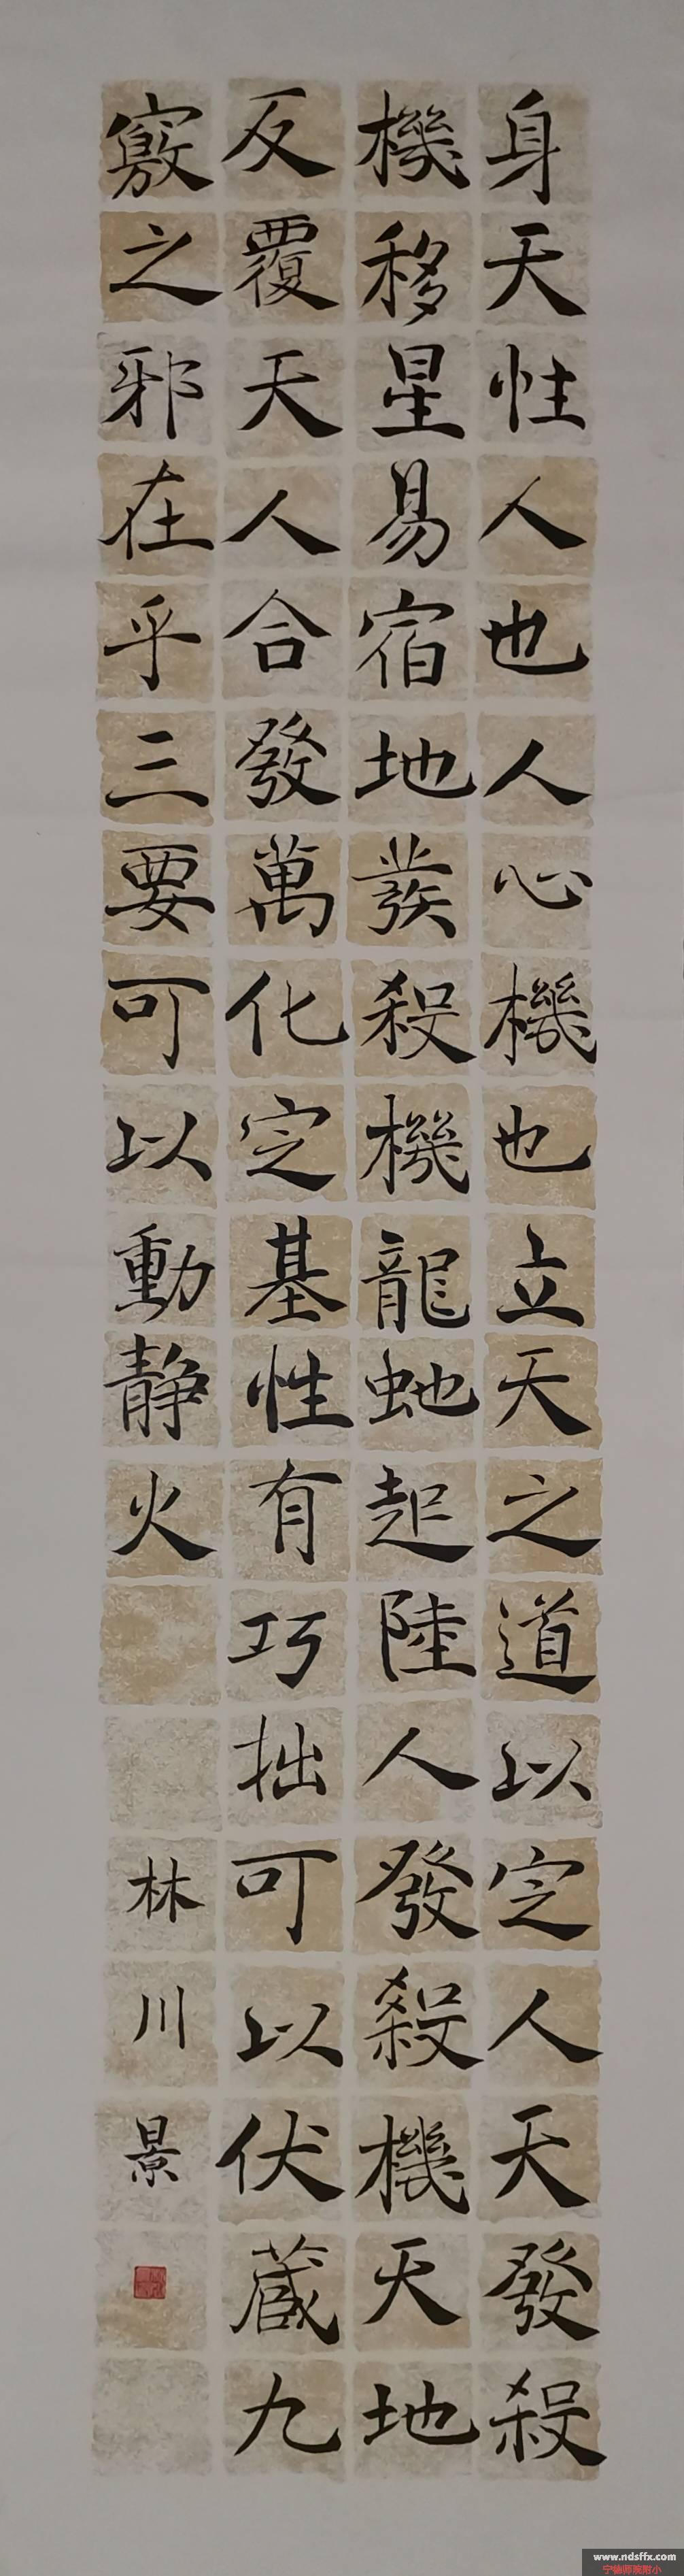 身天性人也人心機也立天之道以定人天發殺
機移星易宿地發殺機龍虵起陸人發殺機天地
反覆天人合發萬化定基性有巧拙可以伏藏九
竅之邪在乎三要可以動静火
林川景
www.ndsffx.com
宁德师院附小